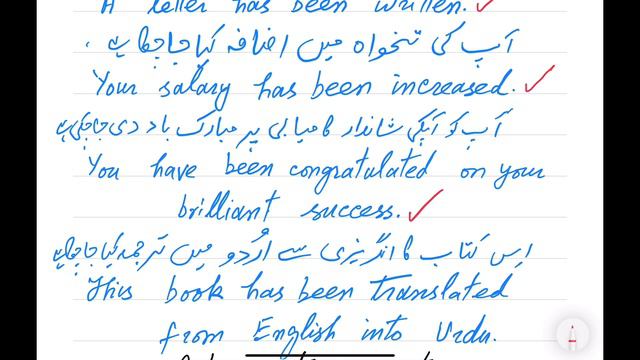 A letter has been written. ✓
آپ کی تنخواہ میں اضافہ کیا جا چکا ہے۔
Your salary has been increased. ✓
آپ کو آپکی شاندار کامیابی پر مبارک باد دی جا چکی ہے
You have been congratulated on your
brilliant success. ✓
اس کتاب کا انگریزی سے اُردو میں ترجمہ کیا جا چکا ہے
This book has been translated
from English into Urdu.